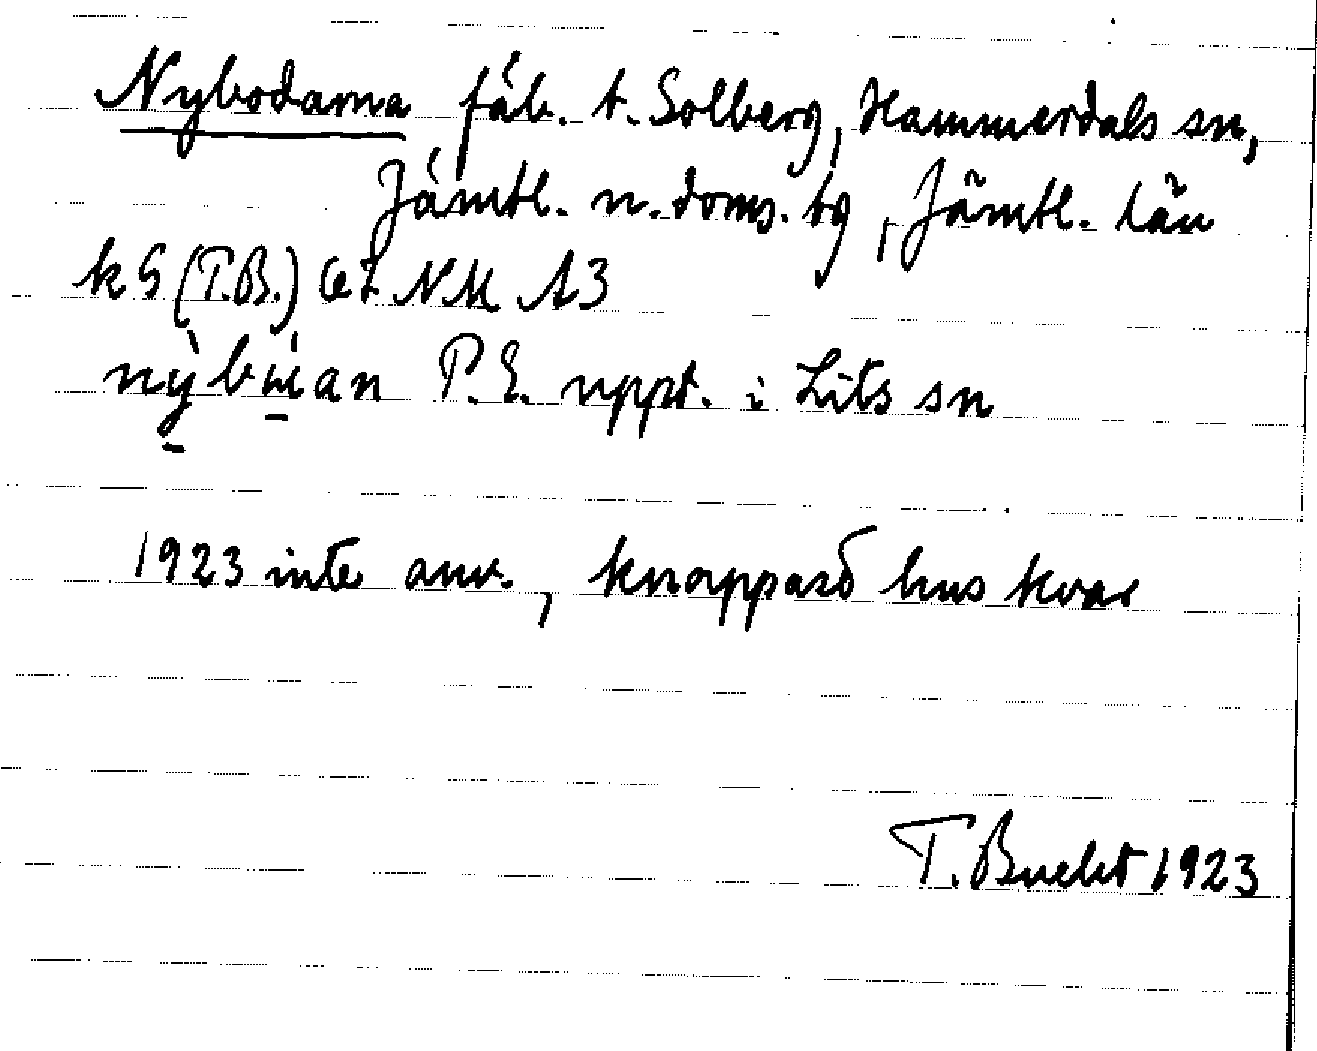 Nybodarna fäb. t. Solberg, Hammerdals sn,
Jämtl. n. doms. tg, Jämtl. län
k S (T.B.) 67 NM A3
nỳbu̱an P.E. uppt. i Lits sn
1923 inte anv., knappast hus kvar
T. Bucht 1923